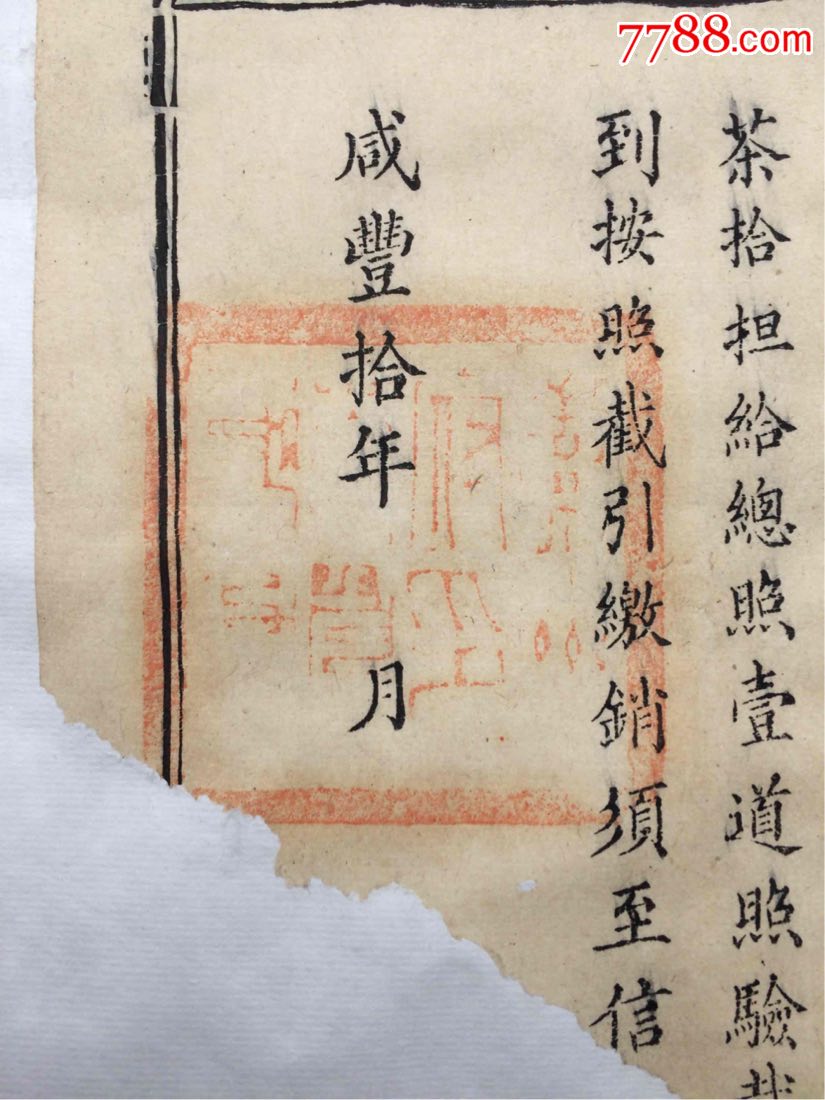 7788.com
茶拾担給總照壹道照驗
到按照截引繳銷須至信
咸豐拾年 月